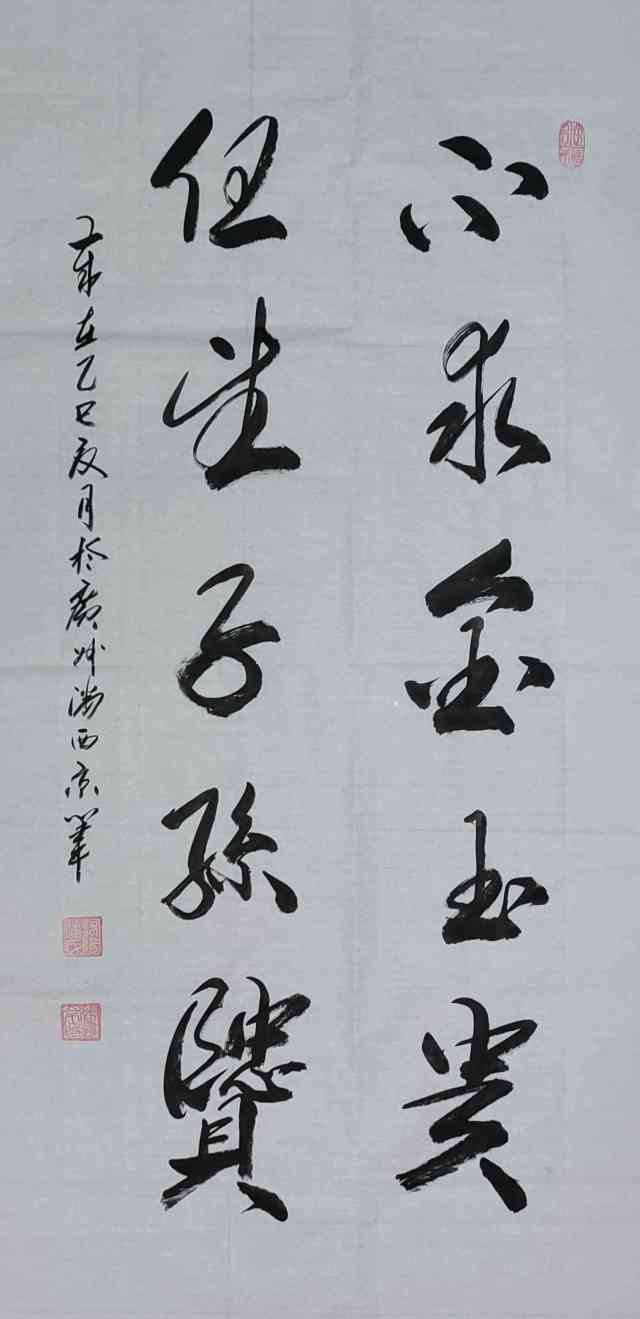 不求金玉貴
但望子孫賢
歲在乙巳夏月於廣州西京筆